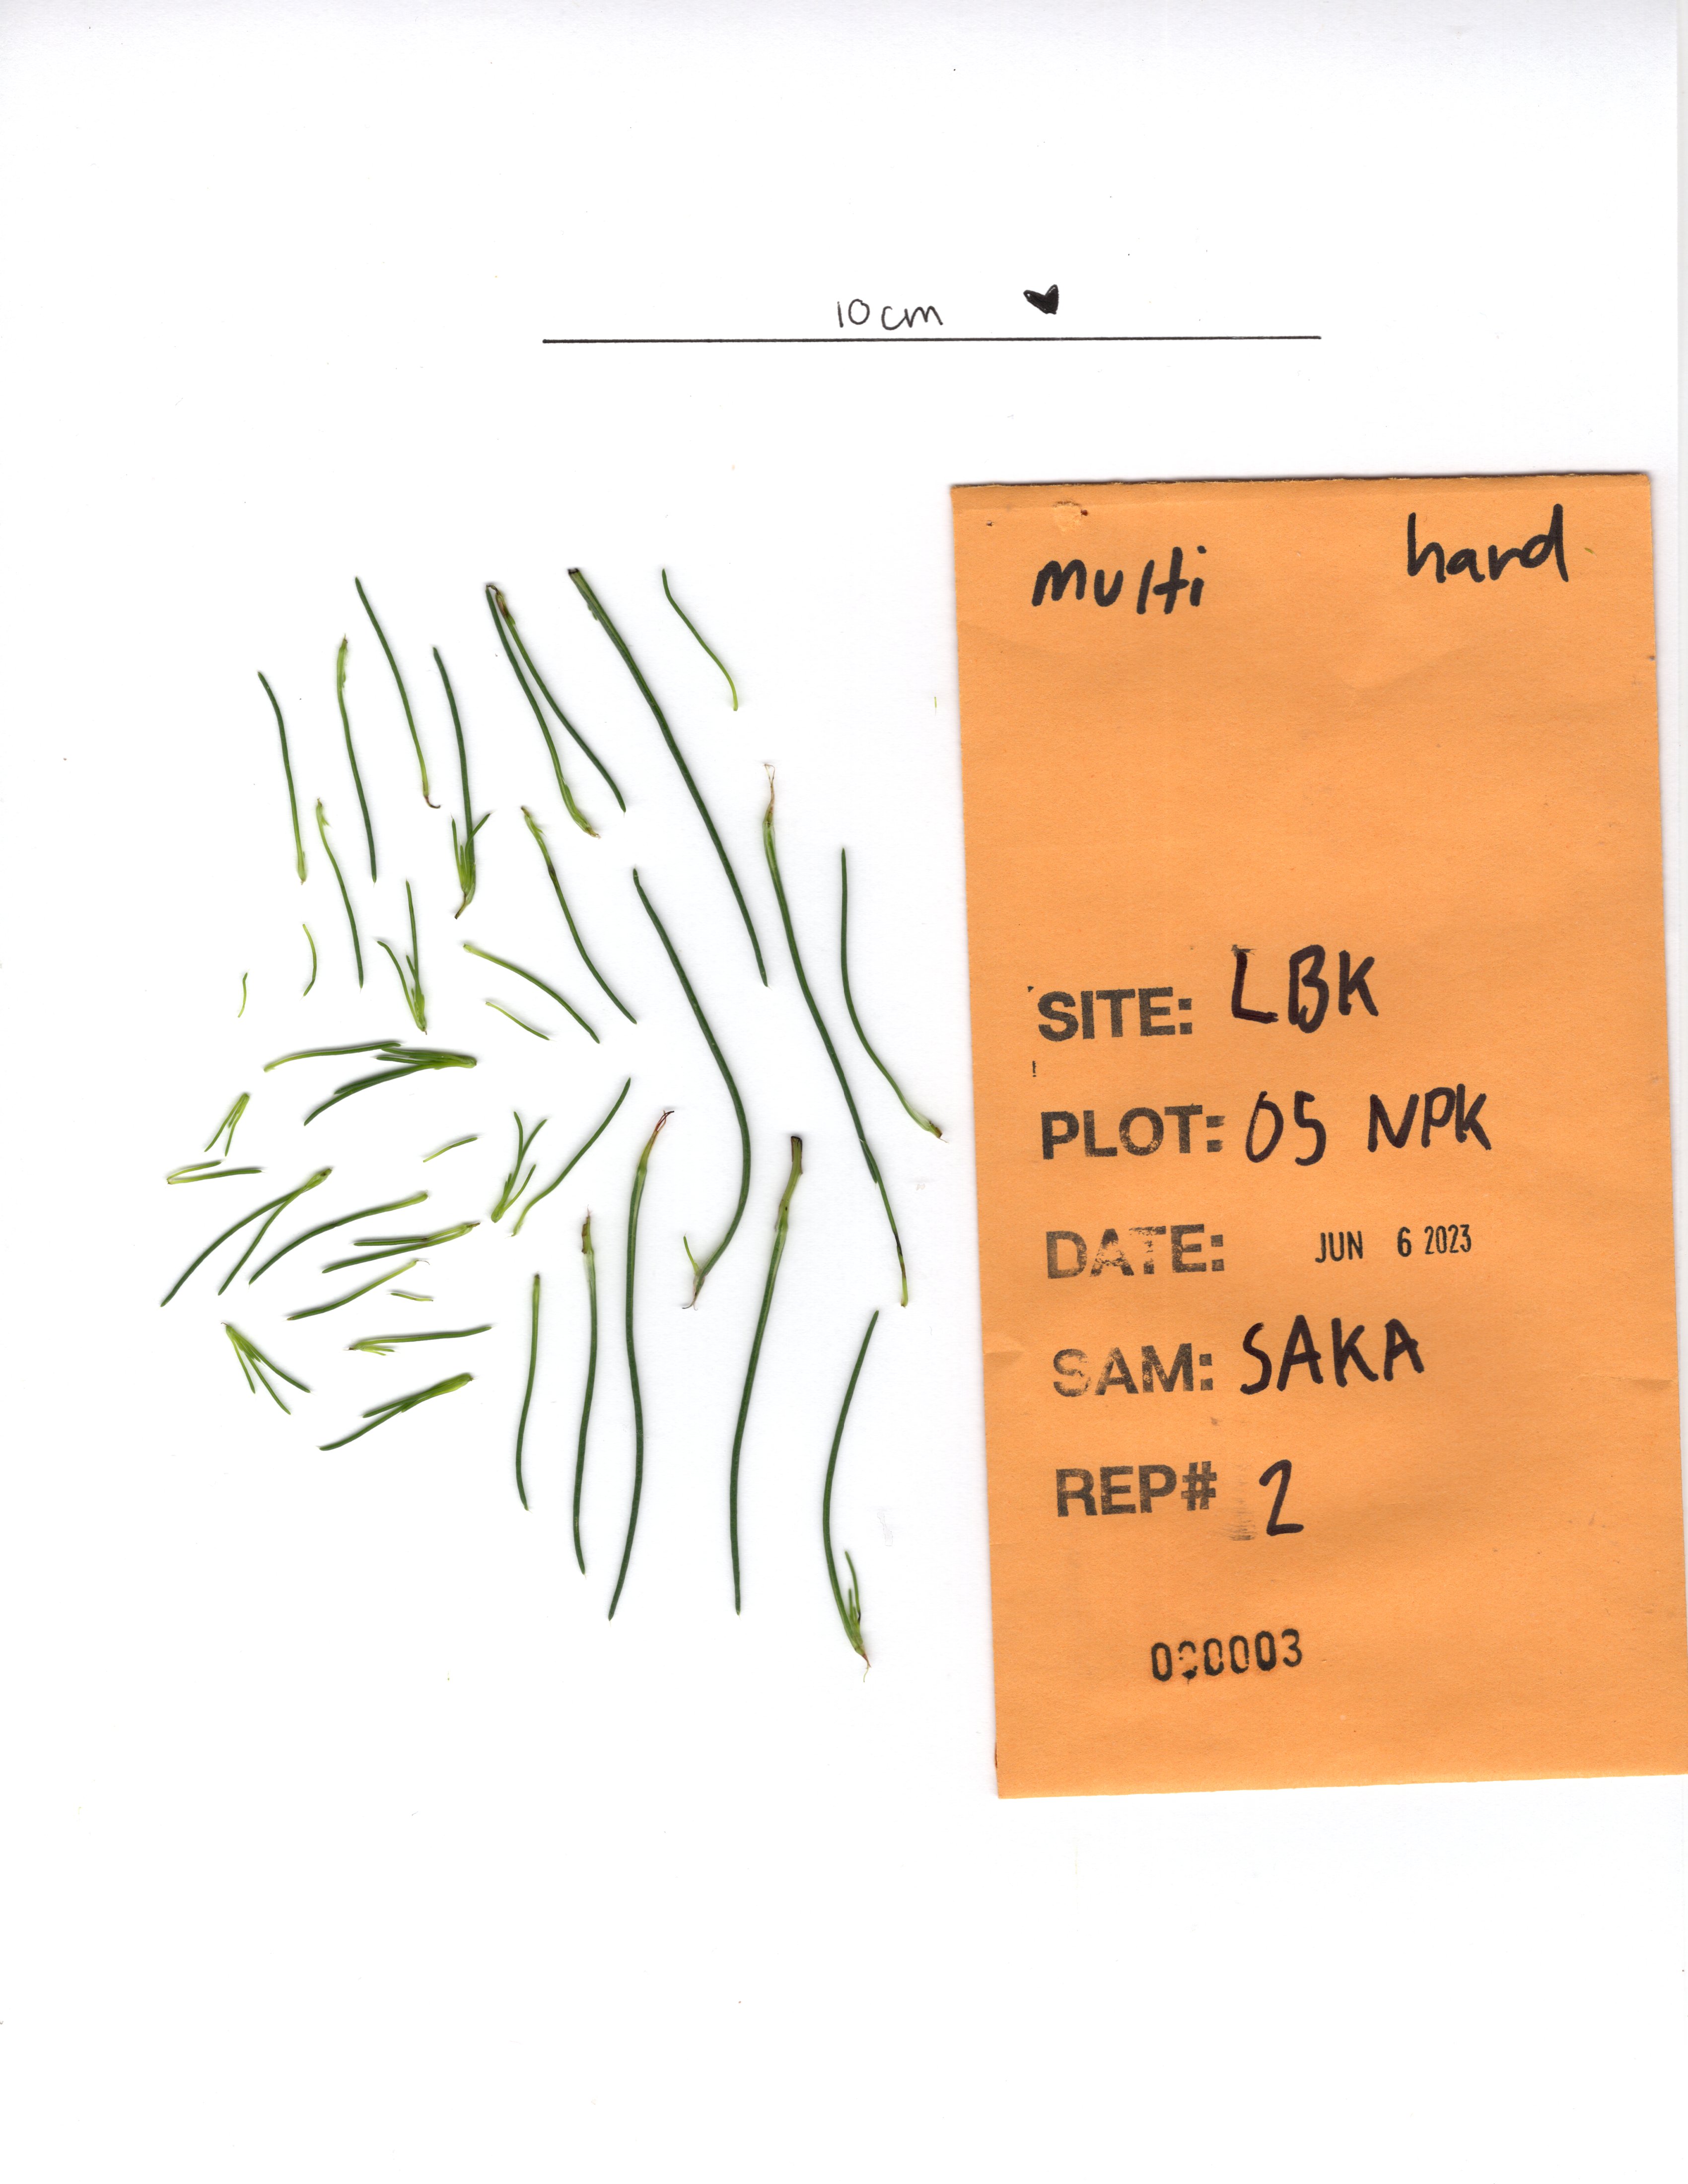 10cm
multi hard
SITE: LBK
PLOT: 05 NPK
DATE: JUN 6 2023
SAM: SAKA
REP# 2
000003